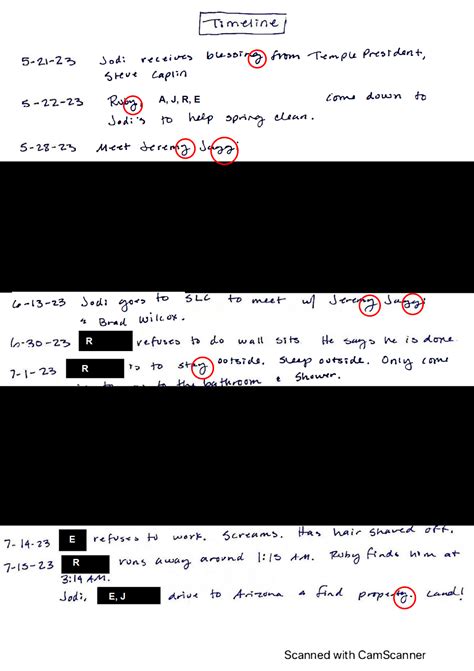 Timeline
5-21-23 Jodi receives blessing from Temple President,
Steve Caplin
5-22-23 Ruby, A, J, R, E come down to
Jodi's to help spring clean.
5-28-23 Meet Jeremy Jaggi
6-13-23 Jodi goes to SLC to meet w/ Jeremy Jaggi
& Brad Wilcox.
6-30-23 R refuses to do wall sits He says he is done.
7-1-23 R is to stay outside. Sleep outside. Only come
to the bathroom & shower.
7-14-23 E refuses to work. Screams. Has hair shaved off.
7-15-23 R runs away around 1:15 A.M. Ruby finds him at
3:14 A.M.
Jodi, E, J drive to Arizona & find property. Land!
Scanned with CamScanner